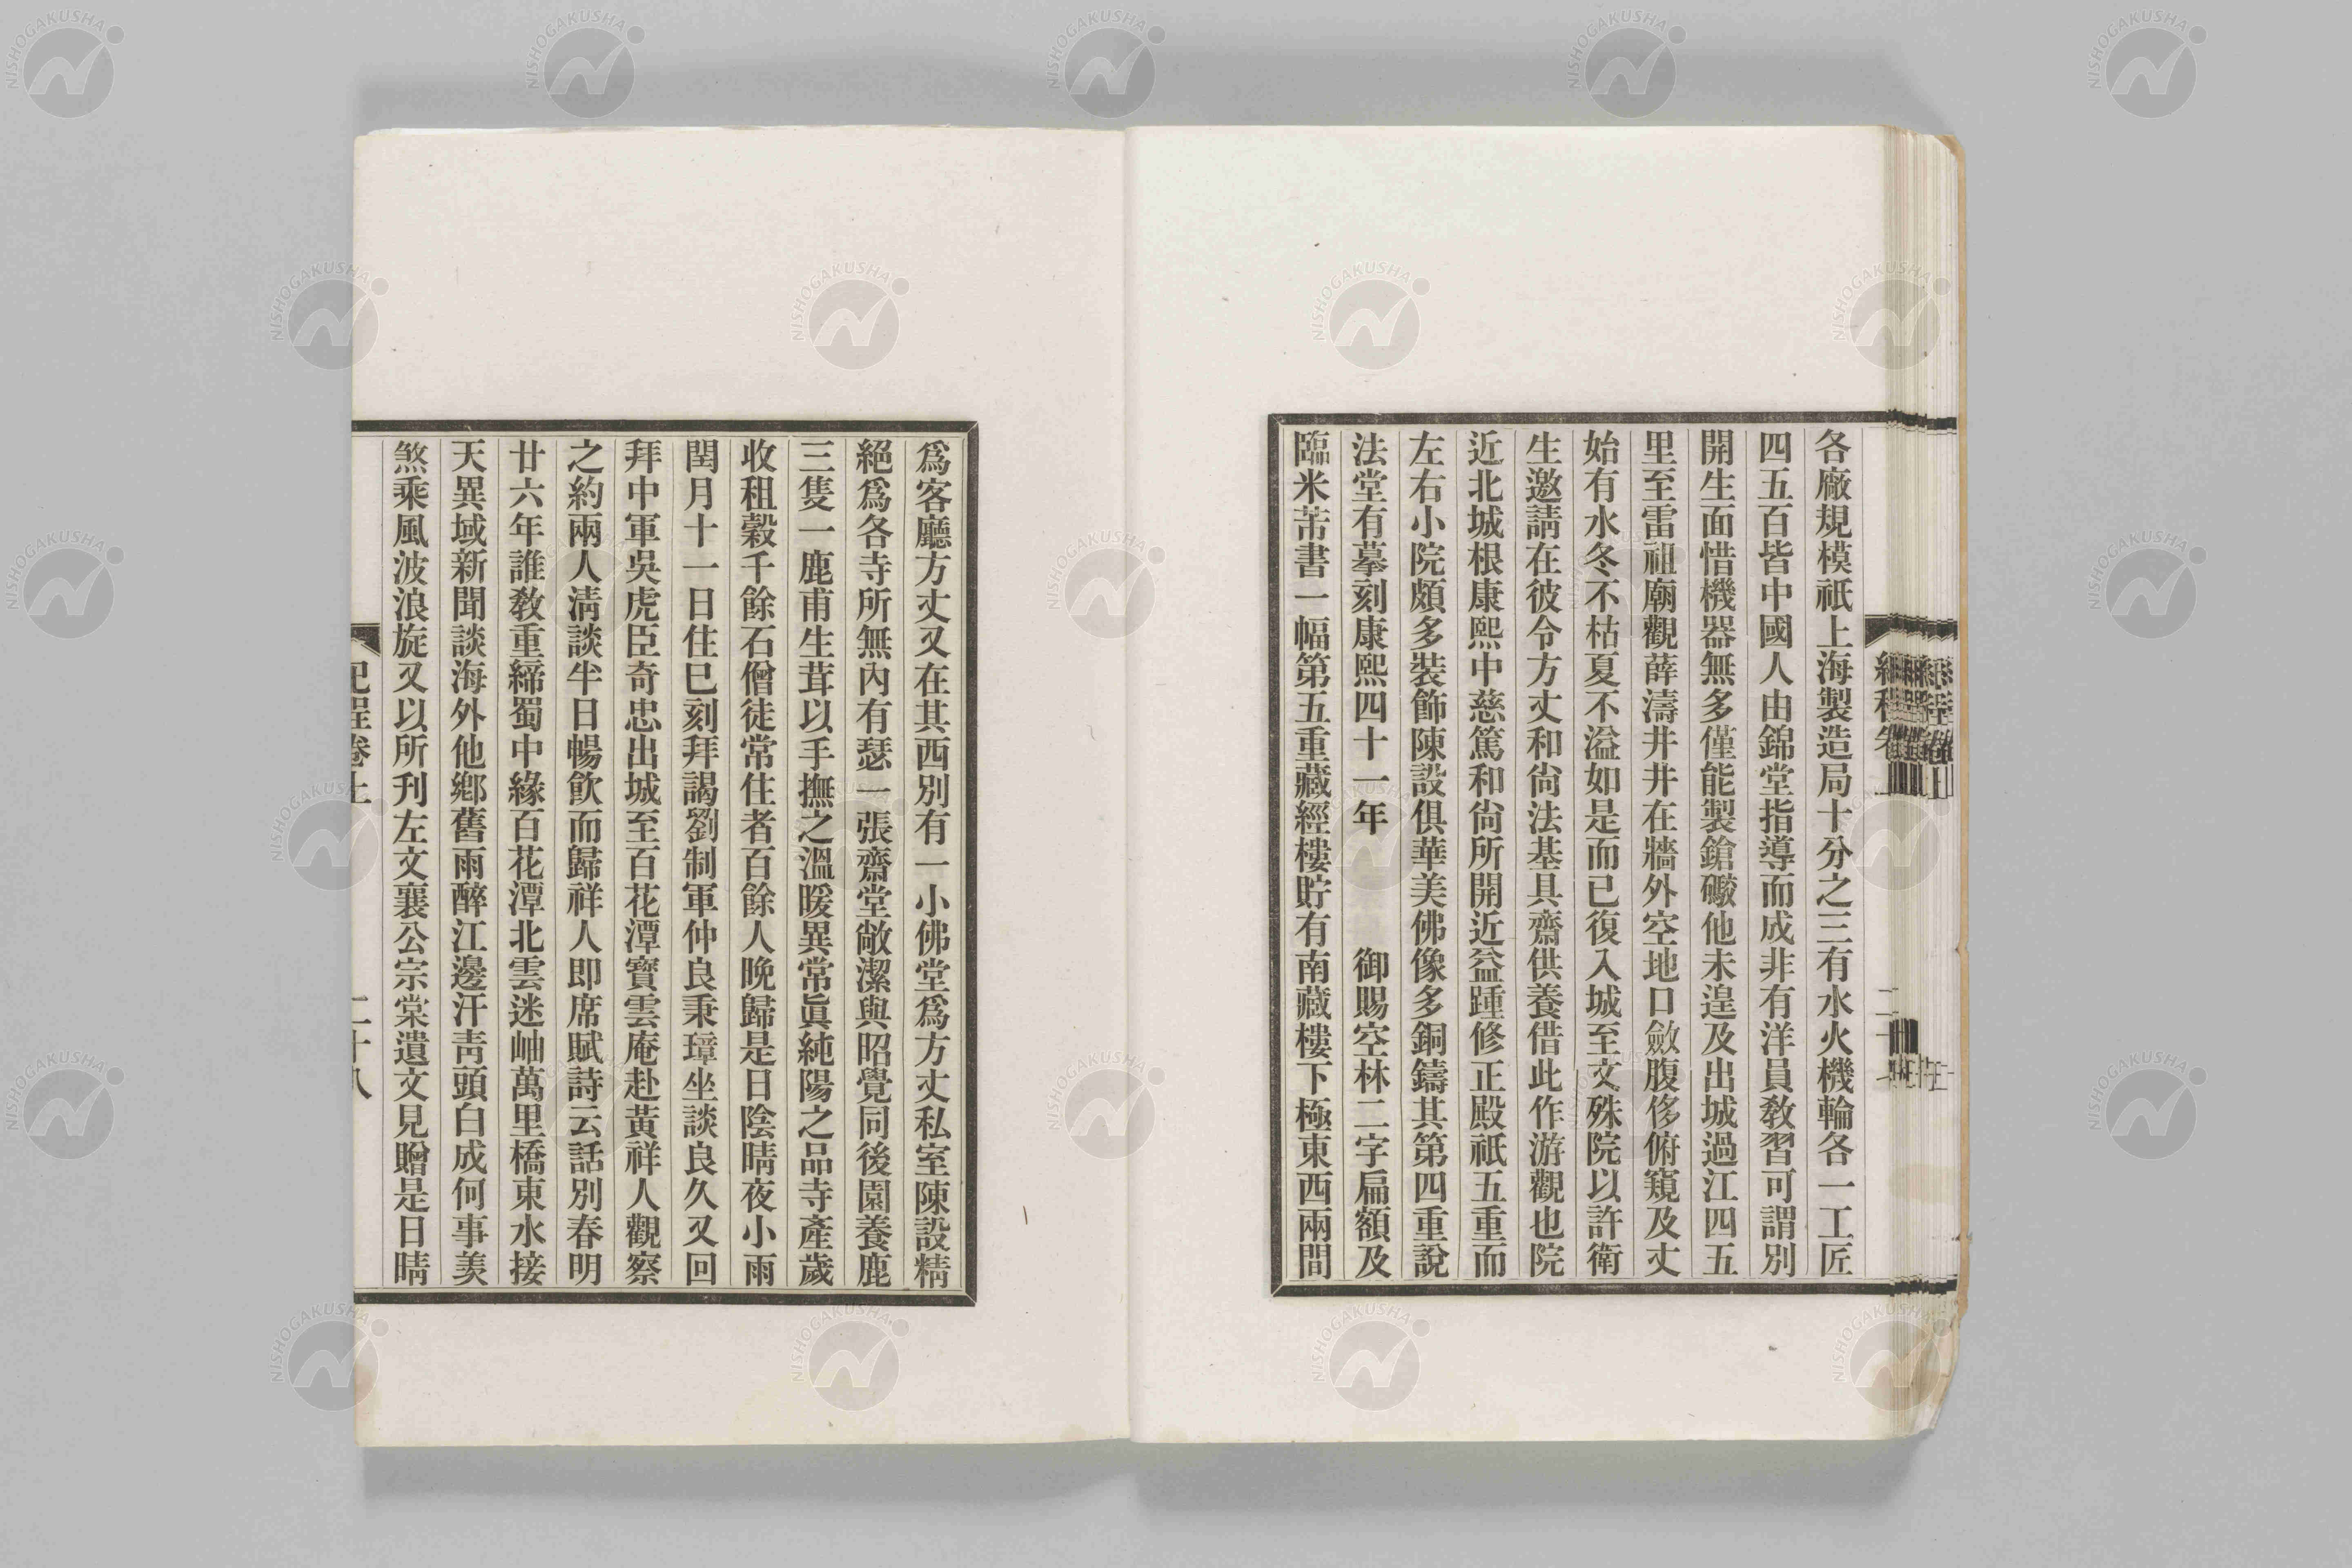 各廠規模祇上海製造局十分之三有水火機輪各一工匠
四五百皆中國人由錦堂指導而成非有洋員教習可謂別
開生面惜機器無多僅能製鎗礮他未遑及出城過江四五
里至雷祖廟觀薛濤井井在牆外空地口斂腹侈俯窺及丈
始有水冬不枯夏不溢如是而已復入城至文殊院以許衛
生邀請在彼令方丈和尙法基具齋供養借此作游觀也院
近北城根康熙中慈篤和尙所開近益踵修正殿祇五重而
左右小院頗多裝飾陳設俱華美佛像多銅鑄其第四重說
法堂有摹刻康熙四十一年 御賜空林二字扁額及
臨米芾書一幅第五重藏經樓貯有南藏樓下極東西兩間
爲客廳方丈又在其西別有一小佛堂爲方丈私室陳設精
絕爲各寺所無內有瑟一張齋堂敞潔與昭覺同後園養鹿
三隻一鹿甫生茸以手撫之溫暖異常眞純陽之品寺產歲
收租穀千餘石僧徒常住者百餘人晚歸是日陰晴夜小雨
閏月十一日住巳刻拜謁劉制軍仲良秉璋坐談良久又回
拜中軍吳虎臣奇忠出城至百花潭寶雲庵赴黃祥人觀察
之約兩人淸談半日暢飮而歸祥人卽席賦詩云話別春明
廿六年誰敎重締蜀中緣百花潭北雲迷岫萬里橋東水接
天異域新聞談海外他鄕舊雨醉江邊汗靑頭白成何事羨
煞乘風波浪旋又以所刊左文襄公宗棠遺文見贈是日晴
紀程卷上
二十八
NISHOGAKUSHA